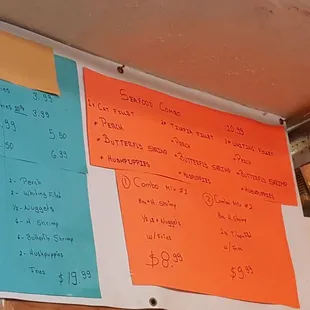 3.99
3.99
.99
5.50
6.99
2 - Perch
2 - Whiting Fillet
Nuggets
6 - H. Shrimp
6 - Butterfly Shrimp
2 - Hushpuppies
Fries
$19.99
Seafood Combo
10.99
1 - Cat Fillet
• Perch
• Butterfly Shrimp
• Hushpuppies
1 - Tilapia Fillet
• Perch
• Butterfly Shrimp
• Hushpuppies
1 - Whiting Fillet
• Perch
• Butterfly Shrimp
• Hushpuppies
① Combo Mix #1
H. Shrimp
Nuggets
w/ Fries
$8.99
② Combo Mix #2
H. Shrimp
w/ Fries
$9.99